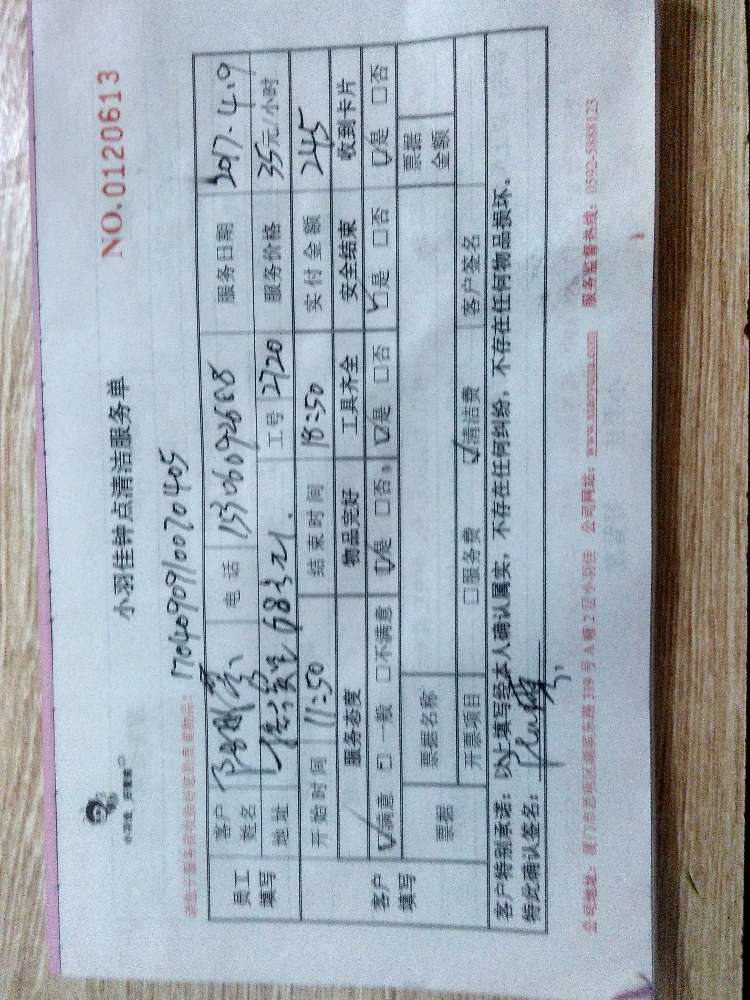 NO.0120613
小羽佳钟点清洁服务单
1704090910070405
员工填写 客户姓名 电话 服务日期 2017.4.9
地址 工号 2720 服务价格 35元/小时
开始时间 11:50 结束时间 18:50 实付金额 245
客户填写 服务态度 物品完好 工具齐全 安全结束 收到卡片
☑满意 □一般 □不满意 ☑是 □否 ☑是 □否 ☑是 □否 ☑是 □否
票据 票据名称 票据金额
开票项目 □服务费 ☑清洁费 客户签名
客户特别承诺：以上填写经本人确认属实，不存在任何纠纷，不存在任何物品损坏。
特此确认签名：
公司地址：厦门市思明区湖滨东路319号A幢2层小羽佳 公司网站：www.xiaoyujia.com 服务监督热线：0592-5888123